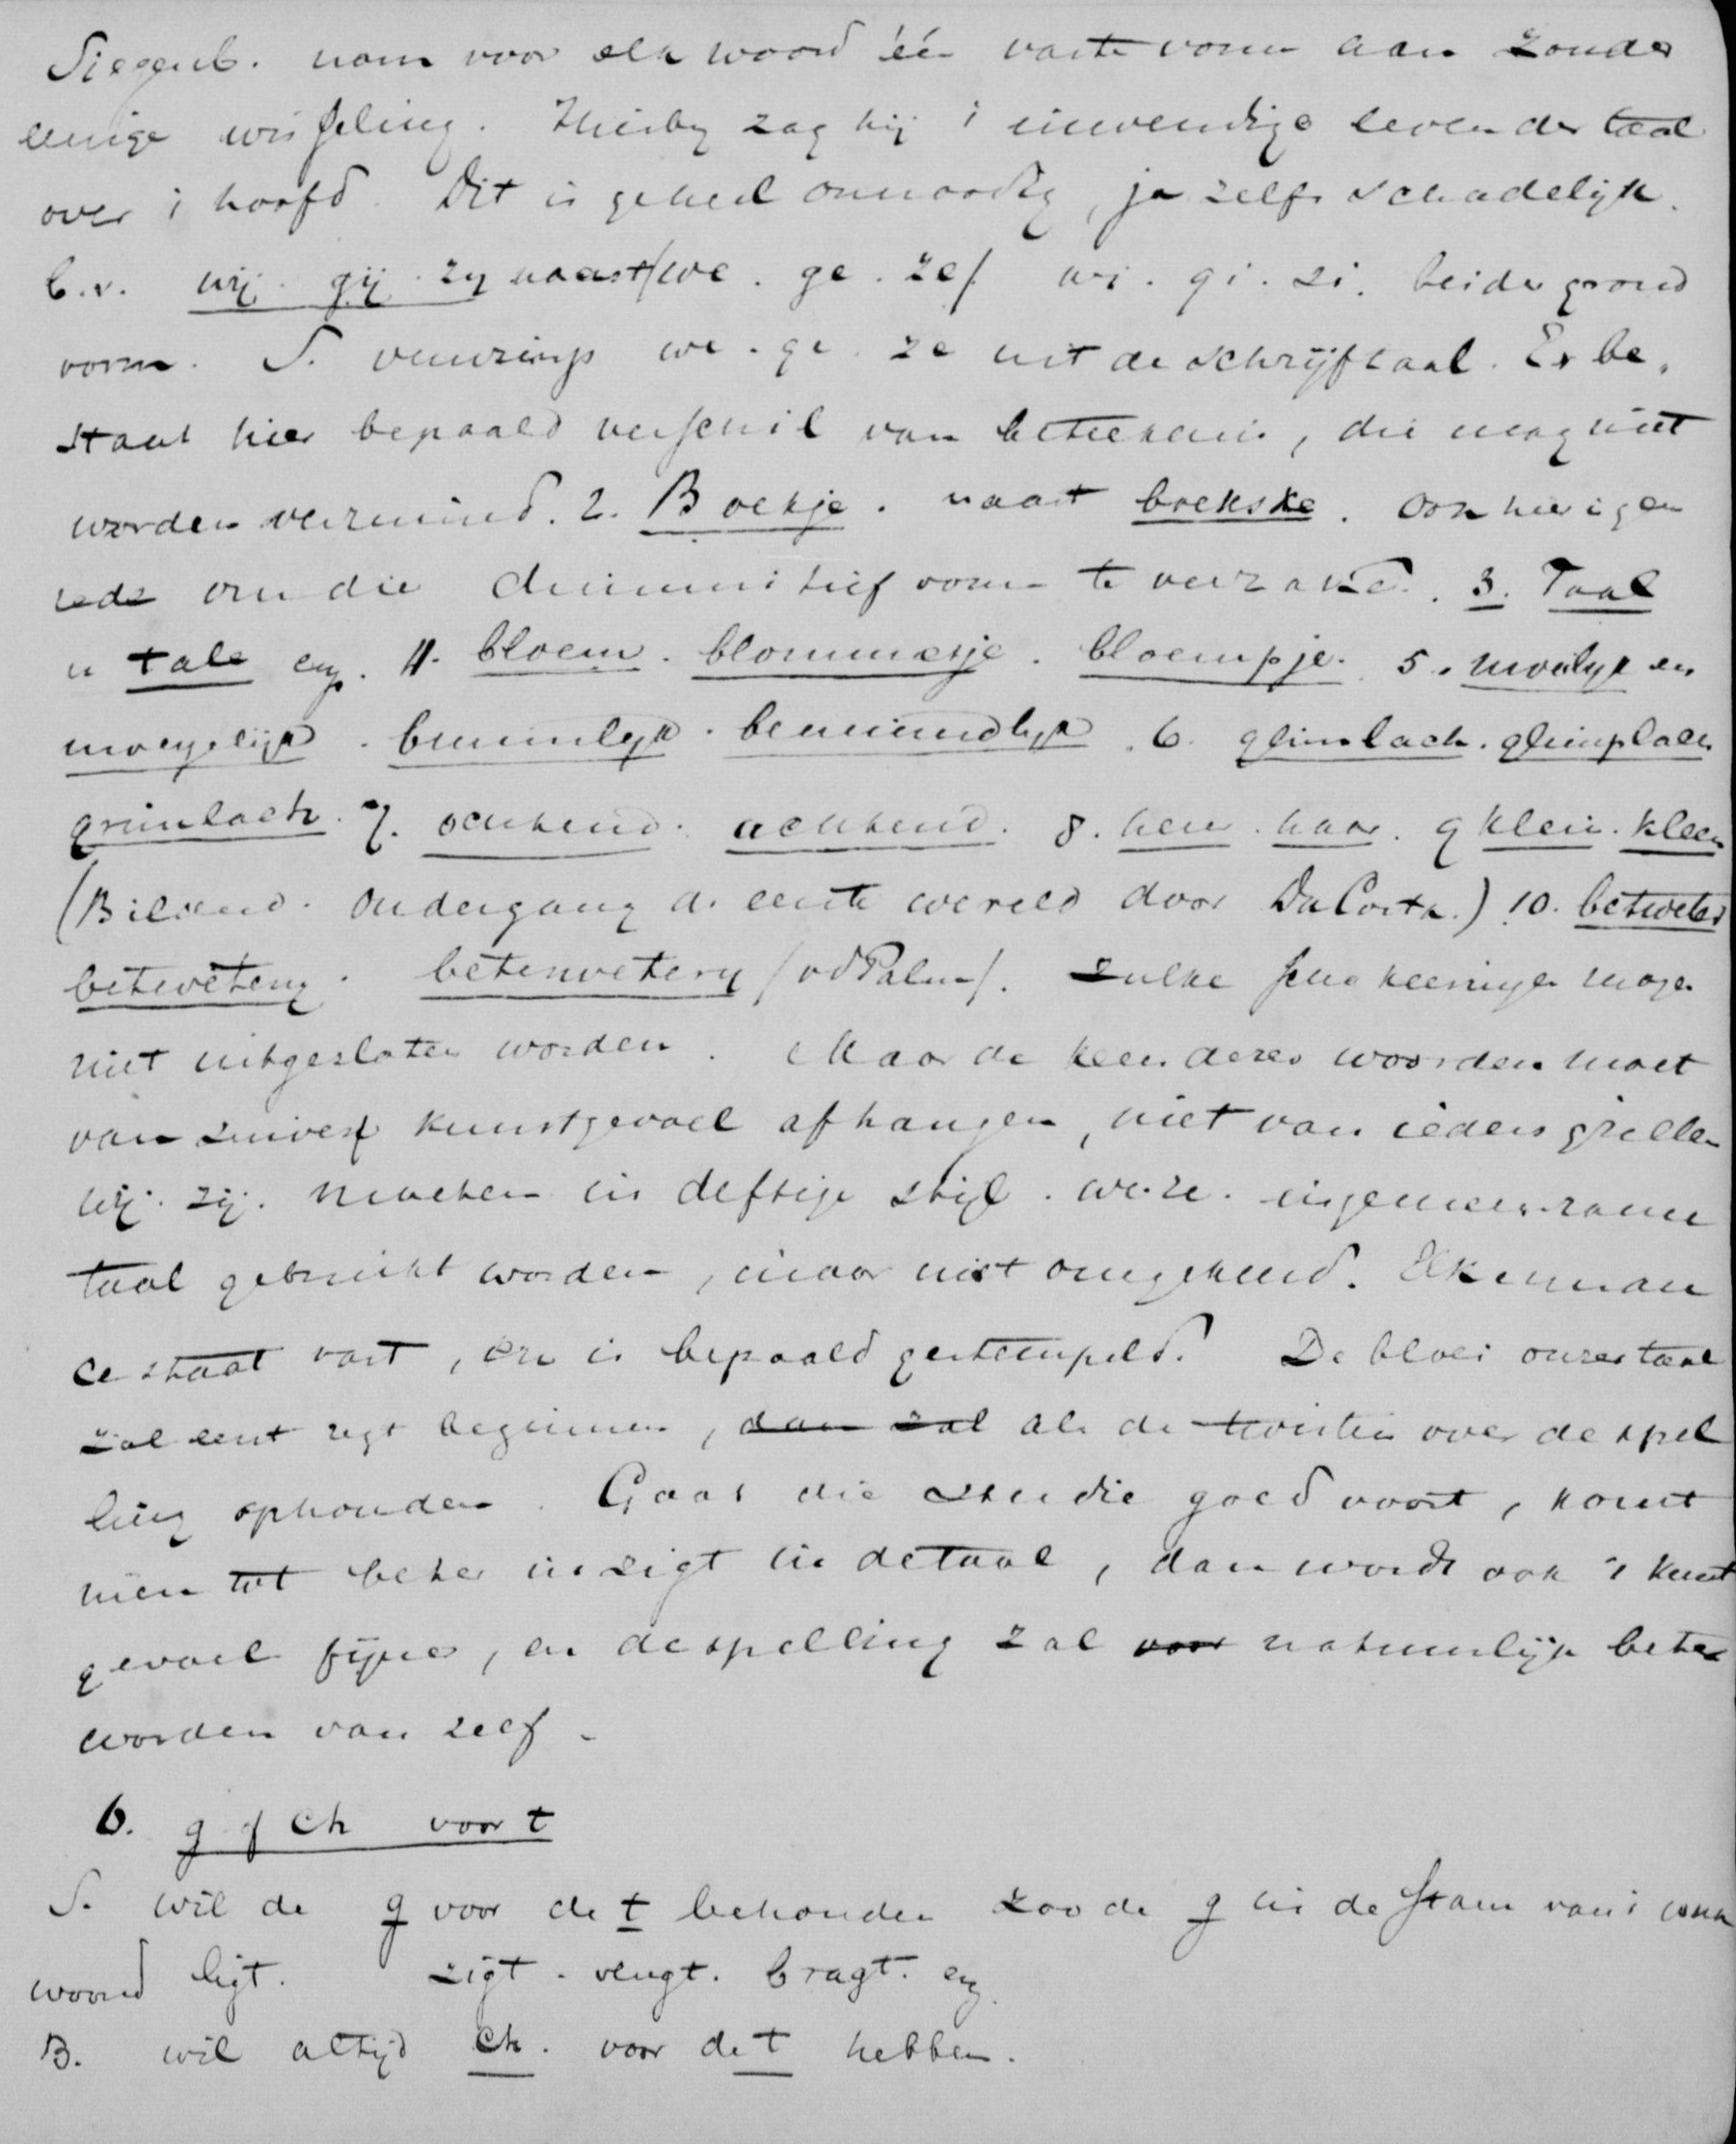 Siegenb. nam voor elk woord één vaste vorm aan zonder
eenige wisseling. Hierby zag hij 't inwendige leven der taal
over 't hoofd. Dit is geheel onnoodig, ja zelfs schadelijk.
b.v. wij. gij. zy naast (we. ge. ze) wi. gi. si. beide grond
vorm. S. we. ge. ze uit de schrijftaal. Er be,
staat hier bepaald verschil van beteekenis, die mag niet
worden verzuimd. 2. Boekje. naast boekske. ook hier is geen
rede om die diminutief vorm te verzaken. 3. Taal
en tale enz. 4. bloem. blommetje. bloempje. 5. moeilyk en
moeyelijk. beminlyk. beminnelyk. 6. glimlach. glimplach
grimlach. 7. ochtend. uchtend. 8. hen. haar. 9 klein. kleen
(Bilderd. Ondergang d. eerste wereld door Da Costa.) 10. betweter
betwetery. beterwetery (vd Palm). Zulke schakeeringen mogen
niet uitgesloten worden. Maar de keus dezer woorden moet
van zuiver kunstgevoel afhangen, niet van ieders grillen
wij. zij. moeten in deftige stijl. we. ze. in gemeenzame
taal gebruikt worden, maar niet omgekeerd. Elke nuan
ce staat vast, en is bepaald gestempeld. De bloei onzer taal
zal eerst regt beginnen, dan zal als de twisten over de spel
ling ophouden. Gaat die studie goed voort, komt
men tot beter inzigt in de taal, dan wordt ook 't kunst
gevoel fijner, en de spelling zal voor natuurlijk beter
worden van zelf.
6. g of ch voor t
S. wil de g voor de t behouden zoo de g in de stam van 't werk
woord ligt. zigt. vlugt. bragt. enz.
B. wil altijd ch. voor de t hebben.